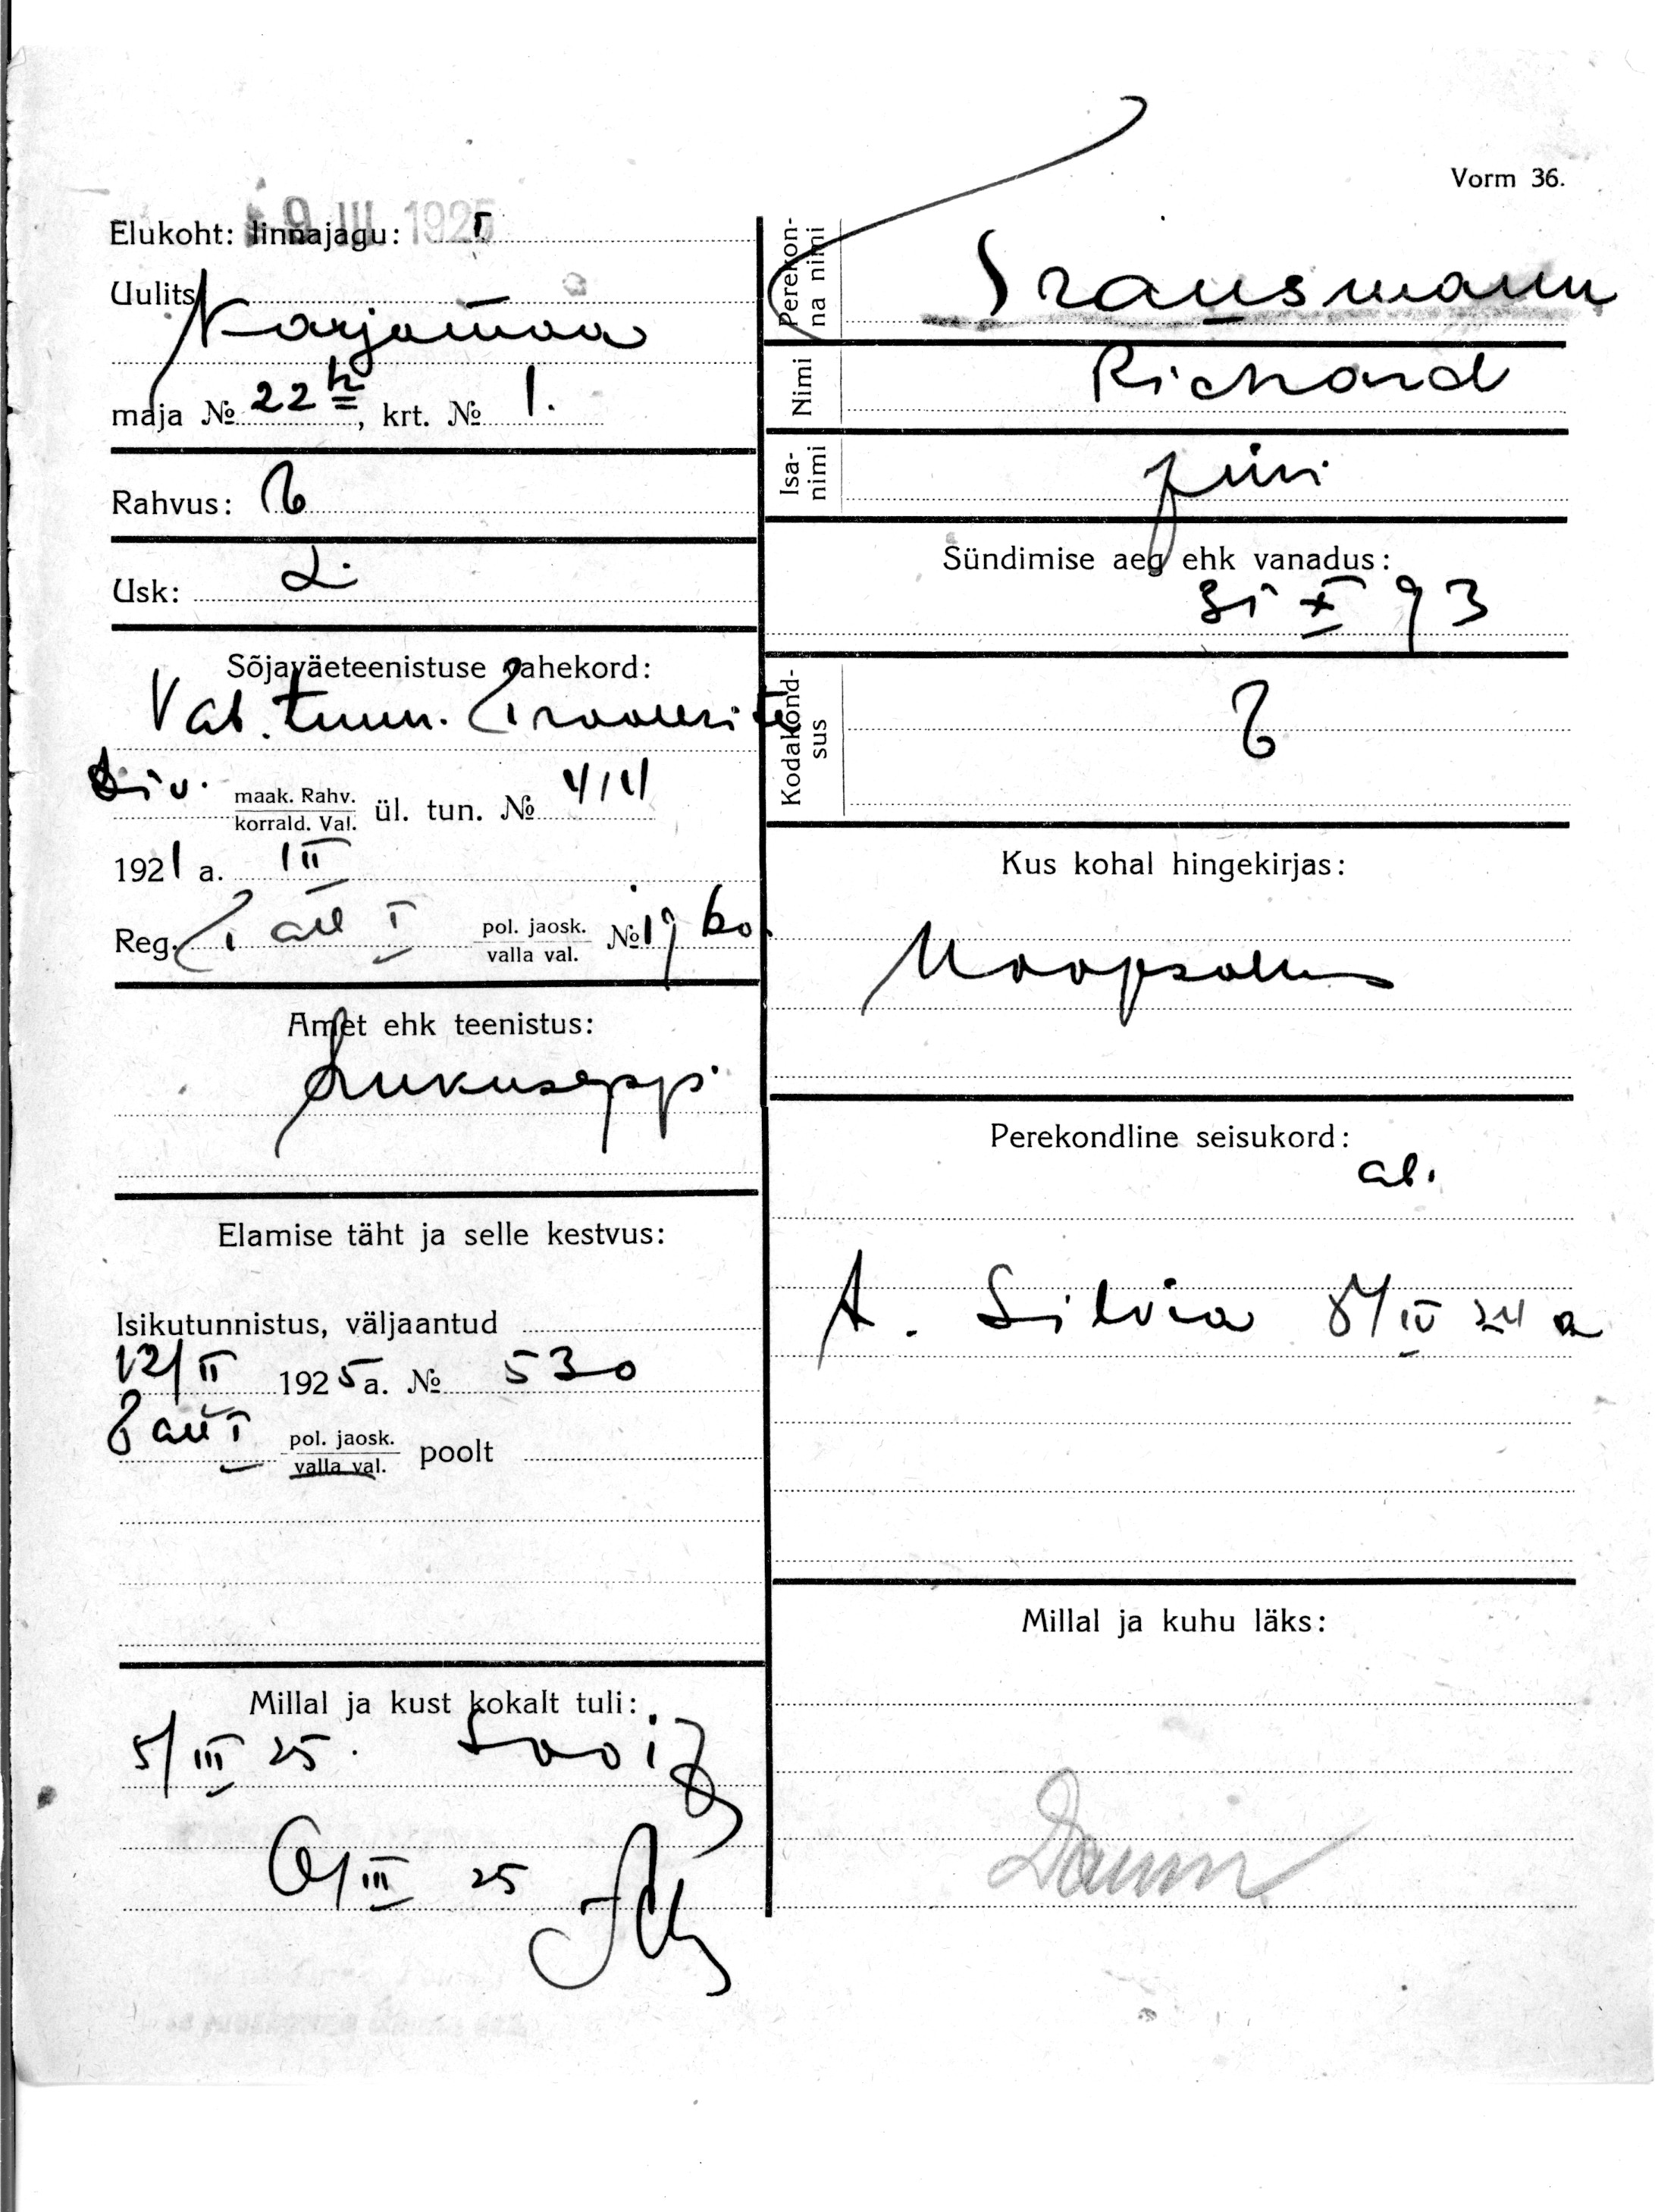 Vorm 36.
9 III 1925
Elukoht: linnajagu: I
Uulits Karjamaa
maja № 22 , krt. № 1.
Rahvus: E
Usk: L.
Sõjaväeteenistuse vahekord:
Vab. tunn.
maak. Rahv.
korrald. Val. ül. tun. №
1921 a. 1 II
Reg. Tall I pol. jaosk. №
valla val.
Amet ehk teenistus:
Lukusepp.
Elamise täht ja selle kestvus:
Isikutunnistus, väljaantud
12/II 1925 a. № 530
Tall I pol. jaosk.
valla val. poolt
Millal ja kust kokalt tuli:
5/III 25. Soo
6/III 25
Perekonna nimi
Nimi Richard
Isanimi Jüri
Sündimise aeg ehk vanadus:
31 X 93
Kodakondsus E
Kus kohal hingekirjas:
Haapsalus
Perekondline seisukord:
ab.
t. Silvia IV 24 a
Millal ja kuhu läks: